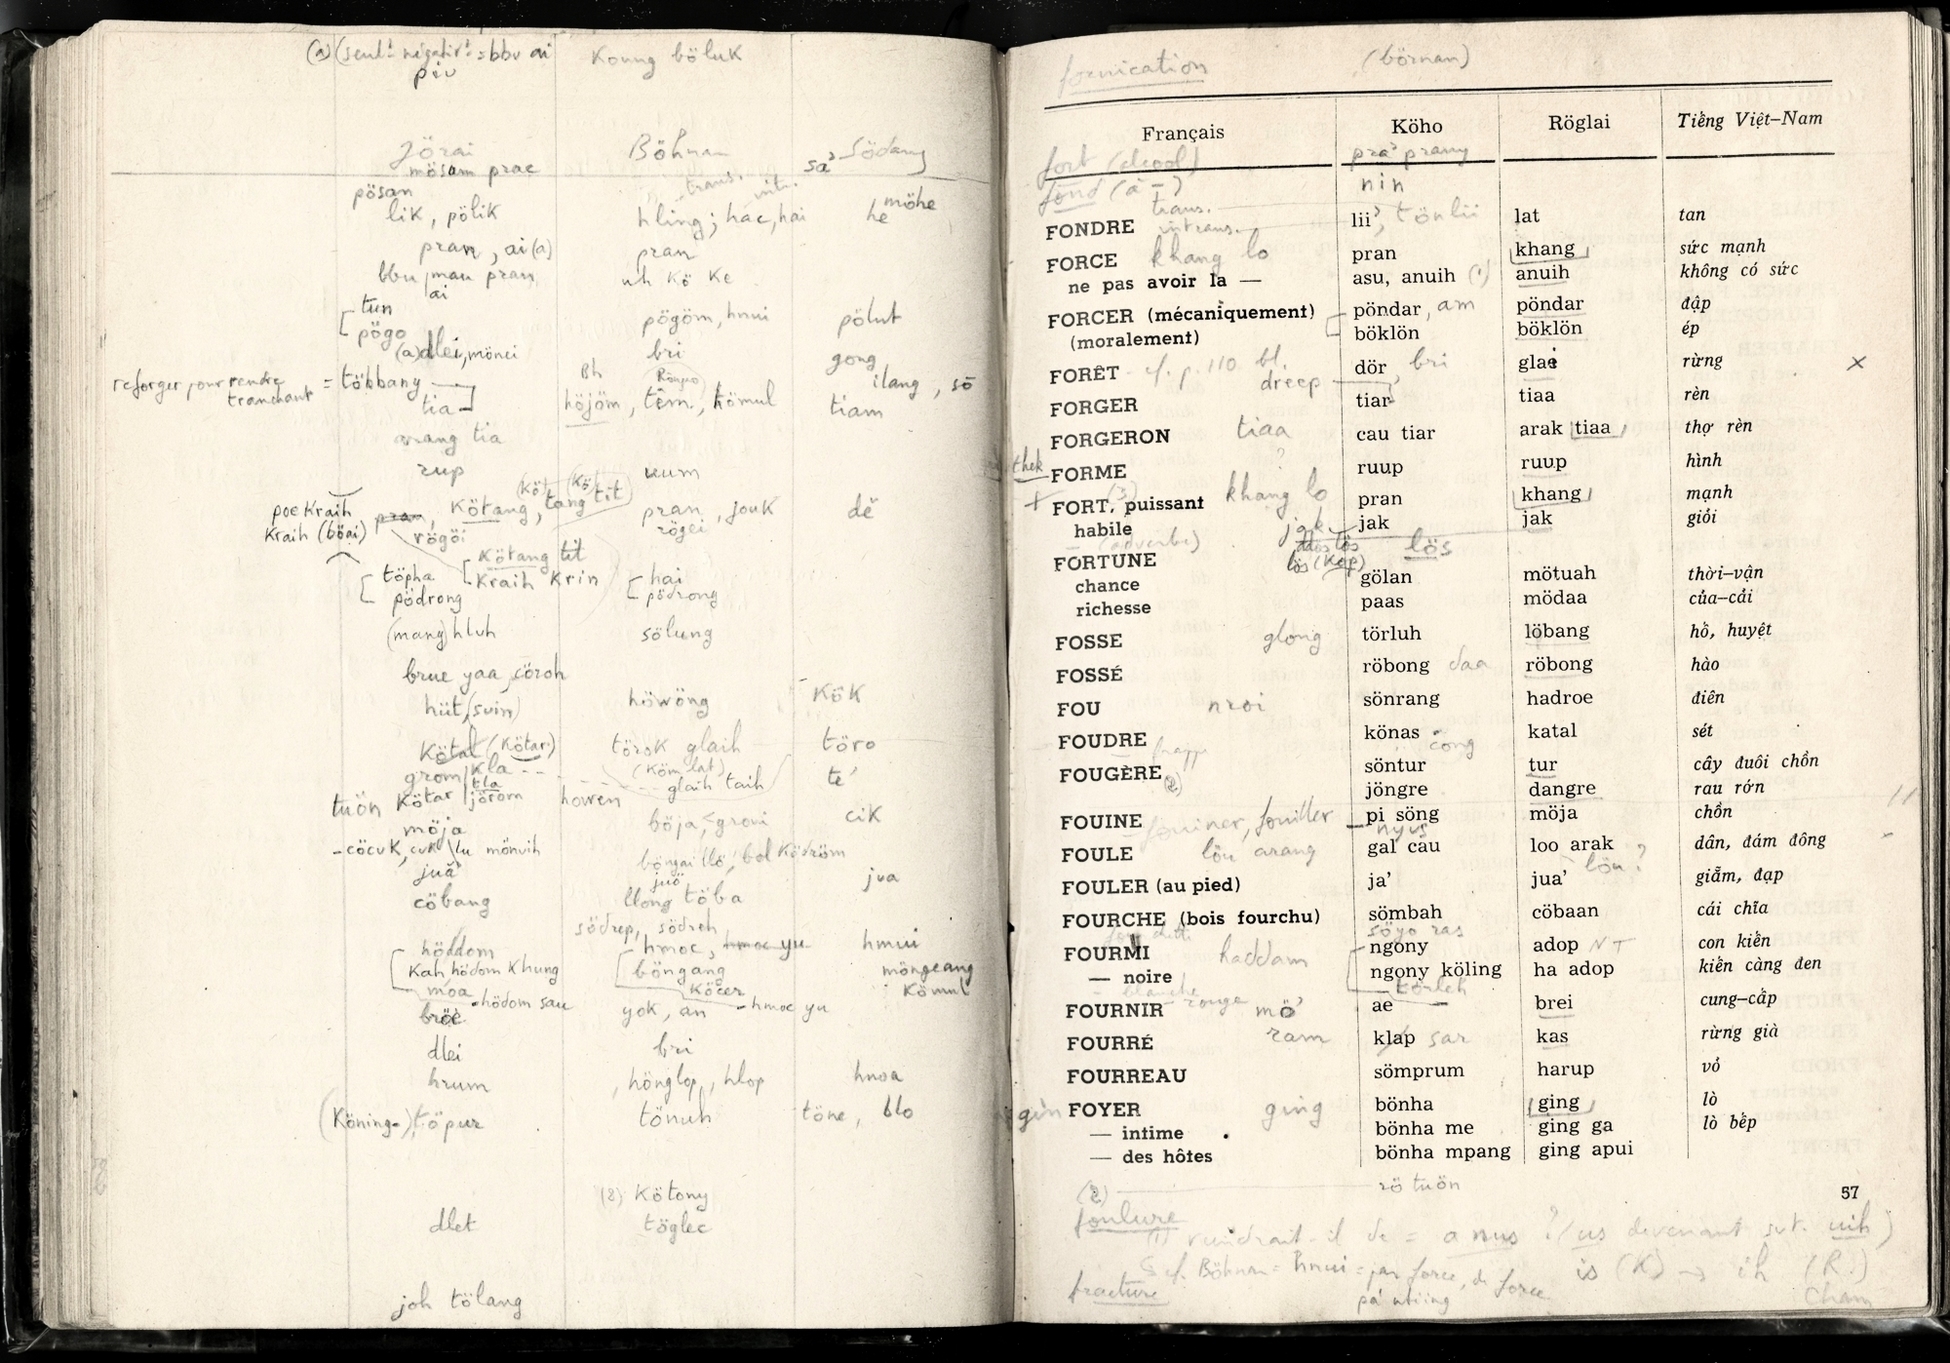 (a) (seult négativt = bbu ai
piu
Koung böluk
Jörai
Böhnan
Södang
mösam prae
pösan
trans.
intr.
lik, pölik
hling; hac, hai
he möhe
pran, ai (a)
pran
bbu man pran
ai
uh kö ke
tun
pögo
pögöm, hnui
pölut
(a) dlei, mönei
bri
gong
reforger pour rendre
tranchant
= tökbang
tia
Bh
höjöm, têm, hömul
ilang, sö
tiam
mang tia
rup
uum
poe Kraih
Kraih (böai)
pran, Kötang, tang tit
rögöi
pran, jouk
rögei
dê
Kötang tit
Kraih Krin
töpha
pödrong
hai
pödrong
(mang) hluh
sölung
brue yaa, cöroh
hüt (suin)
höwöng
Kök
Kötal (Kötar)
törok glaih
töro
(Köm lat)
glaih taih
te'
grom kla
tla
tuön Kötar jörom
howen
möja
böja, < grovi
cik
- cöcuk, cuk lu mönuih
böngai llö, bol Kösröm
juă
juö
jua
cöbang
llong töba
södrep, södreh
höddom
hmoc, hmoc yu
hmui
Kah hödom Khung
böngang
möngeang
moa
Köcer
Kömul
hödom sau
yok, an - hmoc yu
dlei
bri
hrum
hönglop, hlop
hnoa
(Köning-) töpur
tönuh
töne, blo
(2) Kötony
dlet
töglec
joh tölang
fornication (börnan)
Français Köho Röglai Tiếng Việt-Nam
fort (alcool) pra' prany
fond (à -) nin
trans.
FONDRE intrans. lii', tönlii lat tan
FORCE khang lo pran khang sức mạnh
ne pas avoir la — asu, anuih (1) anuih không có sức
FORCER (mécaniquement) pöndar, am pöndar đập
(moralement) böklön böklön ép
FORÊT cf. p. 110 bl. dör, bri glai rừng x
dreep
FORGER tiar tiaa rèn
FORGERON tiaa cau tiar arak tiaa thợ rèn
thek
FORME ? ruup ruup hình
+ FORT, puissant (3) khang lo pran khang mạnh
habile jak jak jak giỏi
(adverbe) lös
FORTUNE lös (Kap)
chance gölan mötuah thời-vận
richesse paas mödaa của-cải
FOSSE glong törluh löbang hồ, huyệt
FOSSÉ röbong daa röbong hào
FOU nroi sönrang hadroe điên
FOUDRE könas cong katal sét
FOUGÈRE (2) söntur tur cây đuôi chồn
jöngre dangre rau rớn
FOUINE pi söng möja chồn
fouiner, fouiller nyus
FOULE löu arang gal cau loo arak dân, đám đông
löu ?
FOULER (au pied) ja' jua' giẫm, đạp
FOURCHE (bois fourchu) sömbah cöbaan cái chĩa
söyo ras
FOURMI haddam ngony adop NT con kiến
— noire ngony köling ha adop kiến càng đen
- blanche
- rouge törleh
FOURNIR mö' ae brei cung-cấp
FOURRÉ ram klap sar kas rừng già
FOURREAU sömprum harup vỏ
gin FOYER ging bönha ging lò
— intime bönha me ging ga lò bếp
— des hôtes bönha mpang ging apui
(2) rö tuön
57
foulure
(1) viendrait-il de = a nus ? / us devenant svt. uih)
cf. Böhnan = hnui = par force, de force is (K) → ih (R.)
fracture
Cham